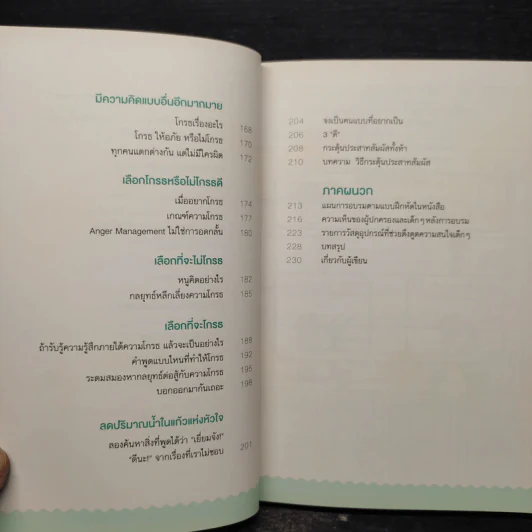 มีความคิดแบบอื่นอีกมากมาย
โกรธเรื่องอะไร 168
โกรธ ให้อภัย หรือไม่โกรธ 170
ทุกคนแตกต่างกัน แต่ไม่มีใครผิด 172
เลือกโกรธหรือไม่โกรธดี
เมื่ออยากโกรธ 174
เกณฑ์ความโกรธ 177
Anger Management ไม่ใช่การอดกลั้น 180
เลือกที่จะไม่โกรธ
หนูคิดอย่างไร 182
กลยุทธ์หลีกเลี่ยงความโกรธ 185
เลือกที่จะโกรธ
ถ้ารับรู้ความรู้สึกภายใต้ความโกรธ แล้วจะเป็นอย่างไร 189
คำพูดแบบไหนที่ทำให้โกรธ 192
ระดมสมองหากลยุทธ์ต่อสู้กับความโกรธ 195
บอกออกมากันเถอะ 198
ลดปริมาณน้ำในแก้วแห่งหัวใจ
ลองค้นหาสิ่งที่พูดได้ว่า "เยี่ยมจัง!" 201
"ดีนะ!" จากเรื่องที่เราไม่ชอบ
204 จงเป็นคนแบบที่อยากเป็น
206 3 "ดี"
208 กระตุ้นประสาทสัมผัสทั้งห้า
210 บทความ วิธีกระตุ้นประสาทสัมผัส
ภาคผนวก
213 แผนการอบรมตามแบบฝึกหัดในหนังสือ
216 ความเห็นของผู้ปกครองและเด็กๆ หลังการอบรม
223 รายการวัสดุอุปกรณ์ที่ช่วยดึงดูดความสนใจเด็กๆ
228 บทสรุป
230 เกี่ยวกับผู้เขียน